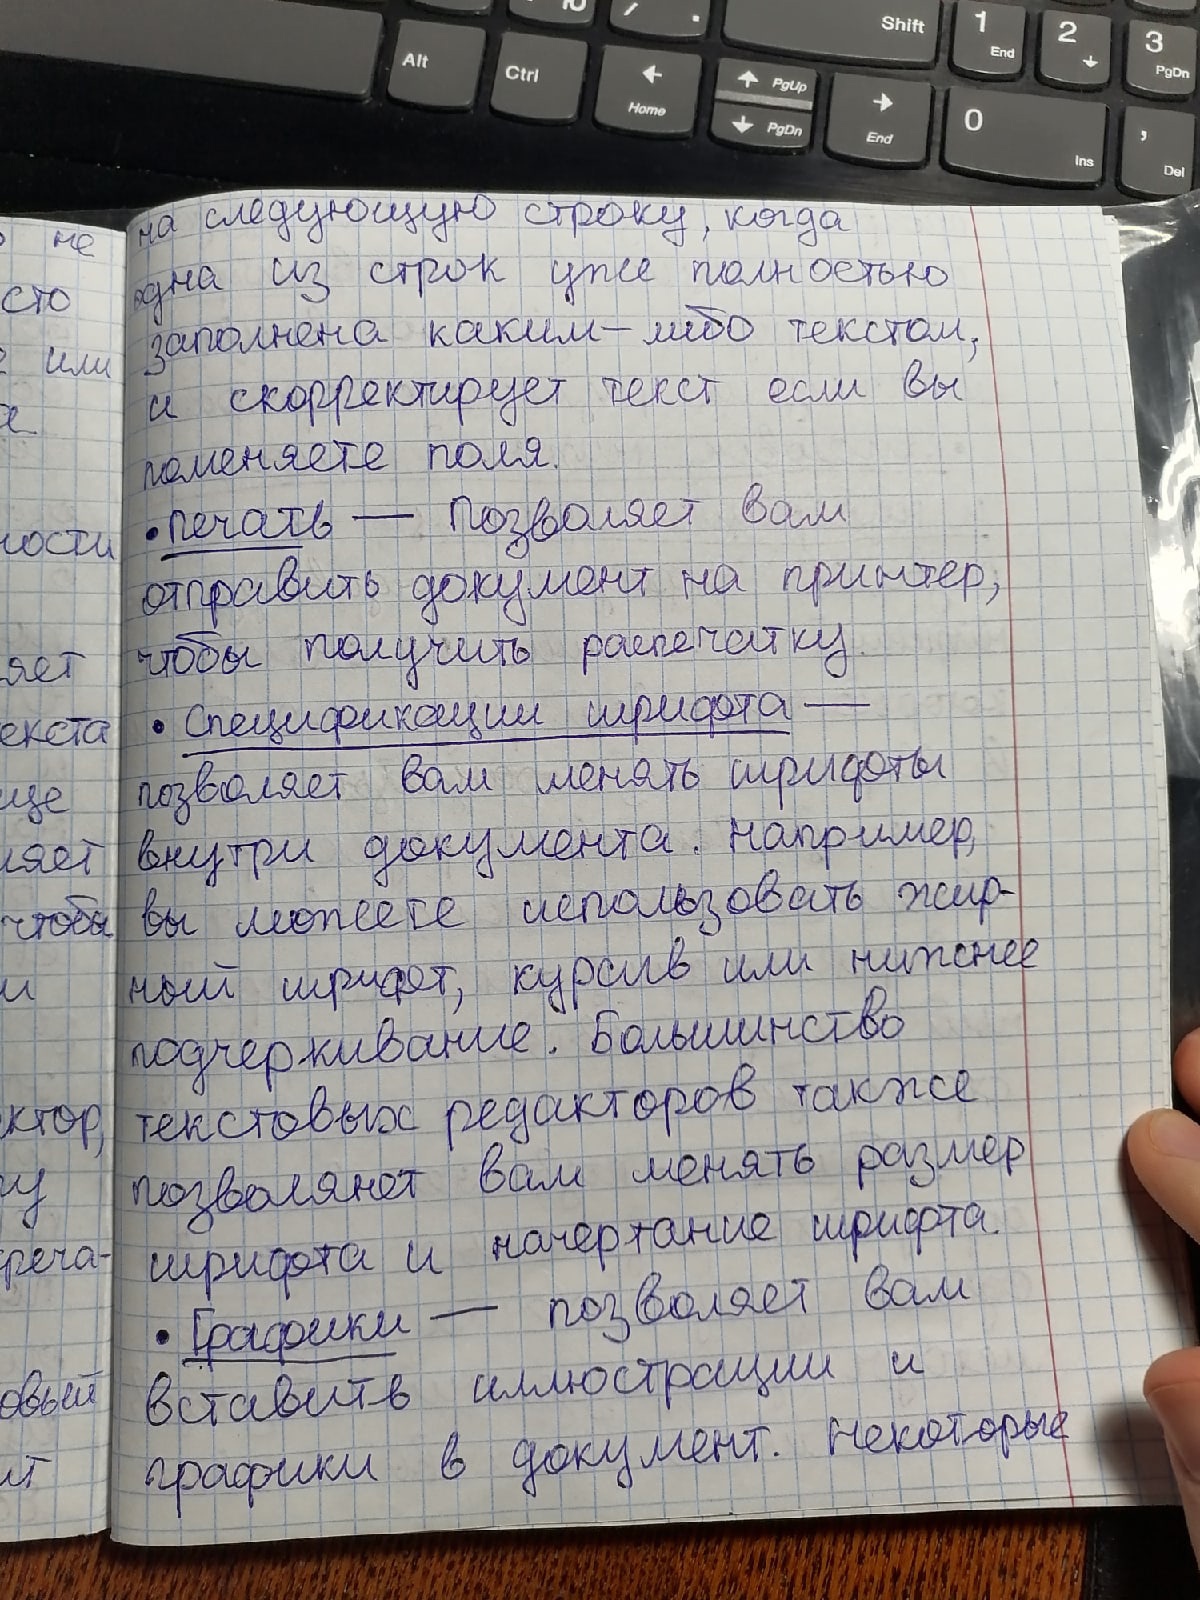 Alt
Ctrl
Home
PgUp
PgDn
End
Shift
1
End
2
3
PgDn
0
Ins
,
Del
не
сто
или
ности
яет
екста
ще
ляет
чтобы
и
ктор,
му
реча-
овый
ит
на следующую строку, когда
одна из строк уже полностью
заполнена каким-либо текстом,
и скорректирует текст если вы
поменяете поля.
• печать — Позволяет вам
отправить документ на принтер,
чтобы получить распечатку.
• Спецификации шрифта —
позволяет вам менять шрифты
внутри документа. Например,
вы можете использовать жир-
ный шрифт, курсив или нижнее
подчеркивание. Большинство
текстовых редакторов также
позволяют вам менять размер
шрифта и начертание шрифта.
• Графики — позволяет вам
вставить иллюстрации и
графики в документ. Некоторые